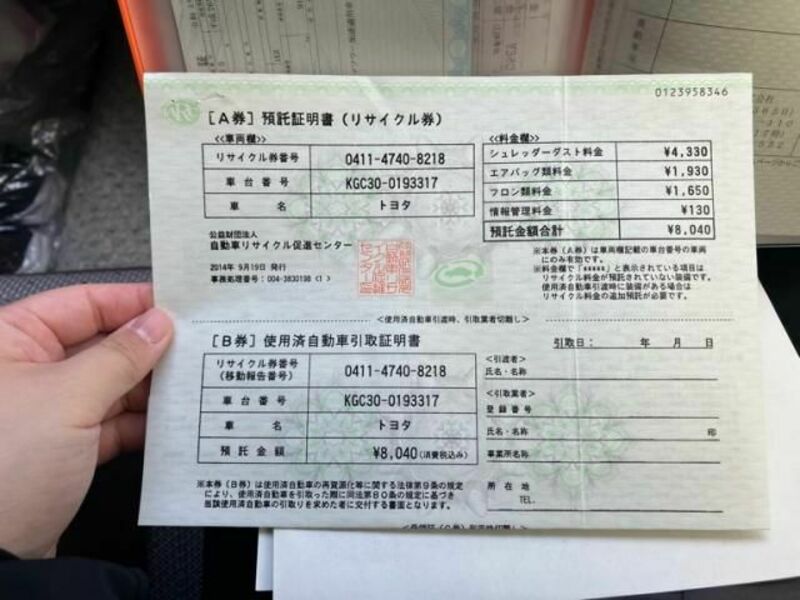 0123958346
[A券] 預託証明書(リサイクル券)
≪車両欄≫
リサイクル券番号 0411-4740-8218
車台番号 KGC30-0193317
車名 トヨタ
≪料金欄≫
シュレッダーダスト料金 ¥4,330
エアバッグ類料金 ¥1,930
フロン類料金 ¥1,650
情報管理料金 ¥130
預託金額合計 ¥8,040
公益財団法人
自動車リサイクル促進センター
2014年 9月19日 発行
事務処理番号:004-3830198 (1)
※本券(A券)は車両欄記載の車台番号の車両
にのみ有効です。
※料金欄で「*****」と表示されている項目は
リサイクル料金が預託されていない装備です。
使用済自動車引渡時に装備がある場合は
リサイクル料金の追加預託が必要です。
<使用済自動車引渡時、引取業者切離し>
[B券] 使用済自動車引取証明書
引取日: 年 月 日
リサイクル券番号
(移動報告番号) 0411-4740-8218
車台番号 KGC30-0193317
車名 トヨタ
預託金額 ¥8,040(消費税込み)
<引渡者>
氏名・名称
<引取業者>
登録番号
氏名・名称 印
事業所名称
所在地
TEL.
※本券(B券)は使用済自動車の再資源化等に関する法律第9条の規定
により、使用済自動車を引取った際に同法第80条の規定に基づき
当該使用済自動車の引取りを求めた者に交付する書面となります。